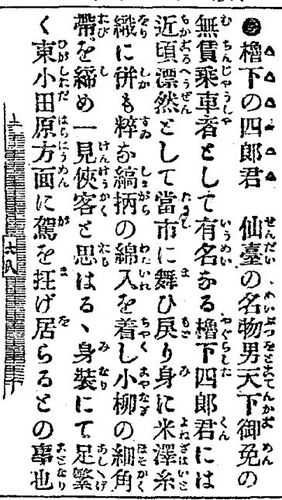 ◉櫓下の四郎君　仙臺の名物男天下御免の
無賃乗車者として有名なる櫓下四郎君には
近頃漂然として當市に舞ひ戻り身に米澤糸
織に併も粋な縞柄の綿入を着し小柳の細角
帶を締め一見俠客と思はるゝ身装にて足繁
く東小田原方面に駕を抂げ居らるとの事也